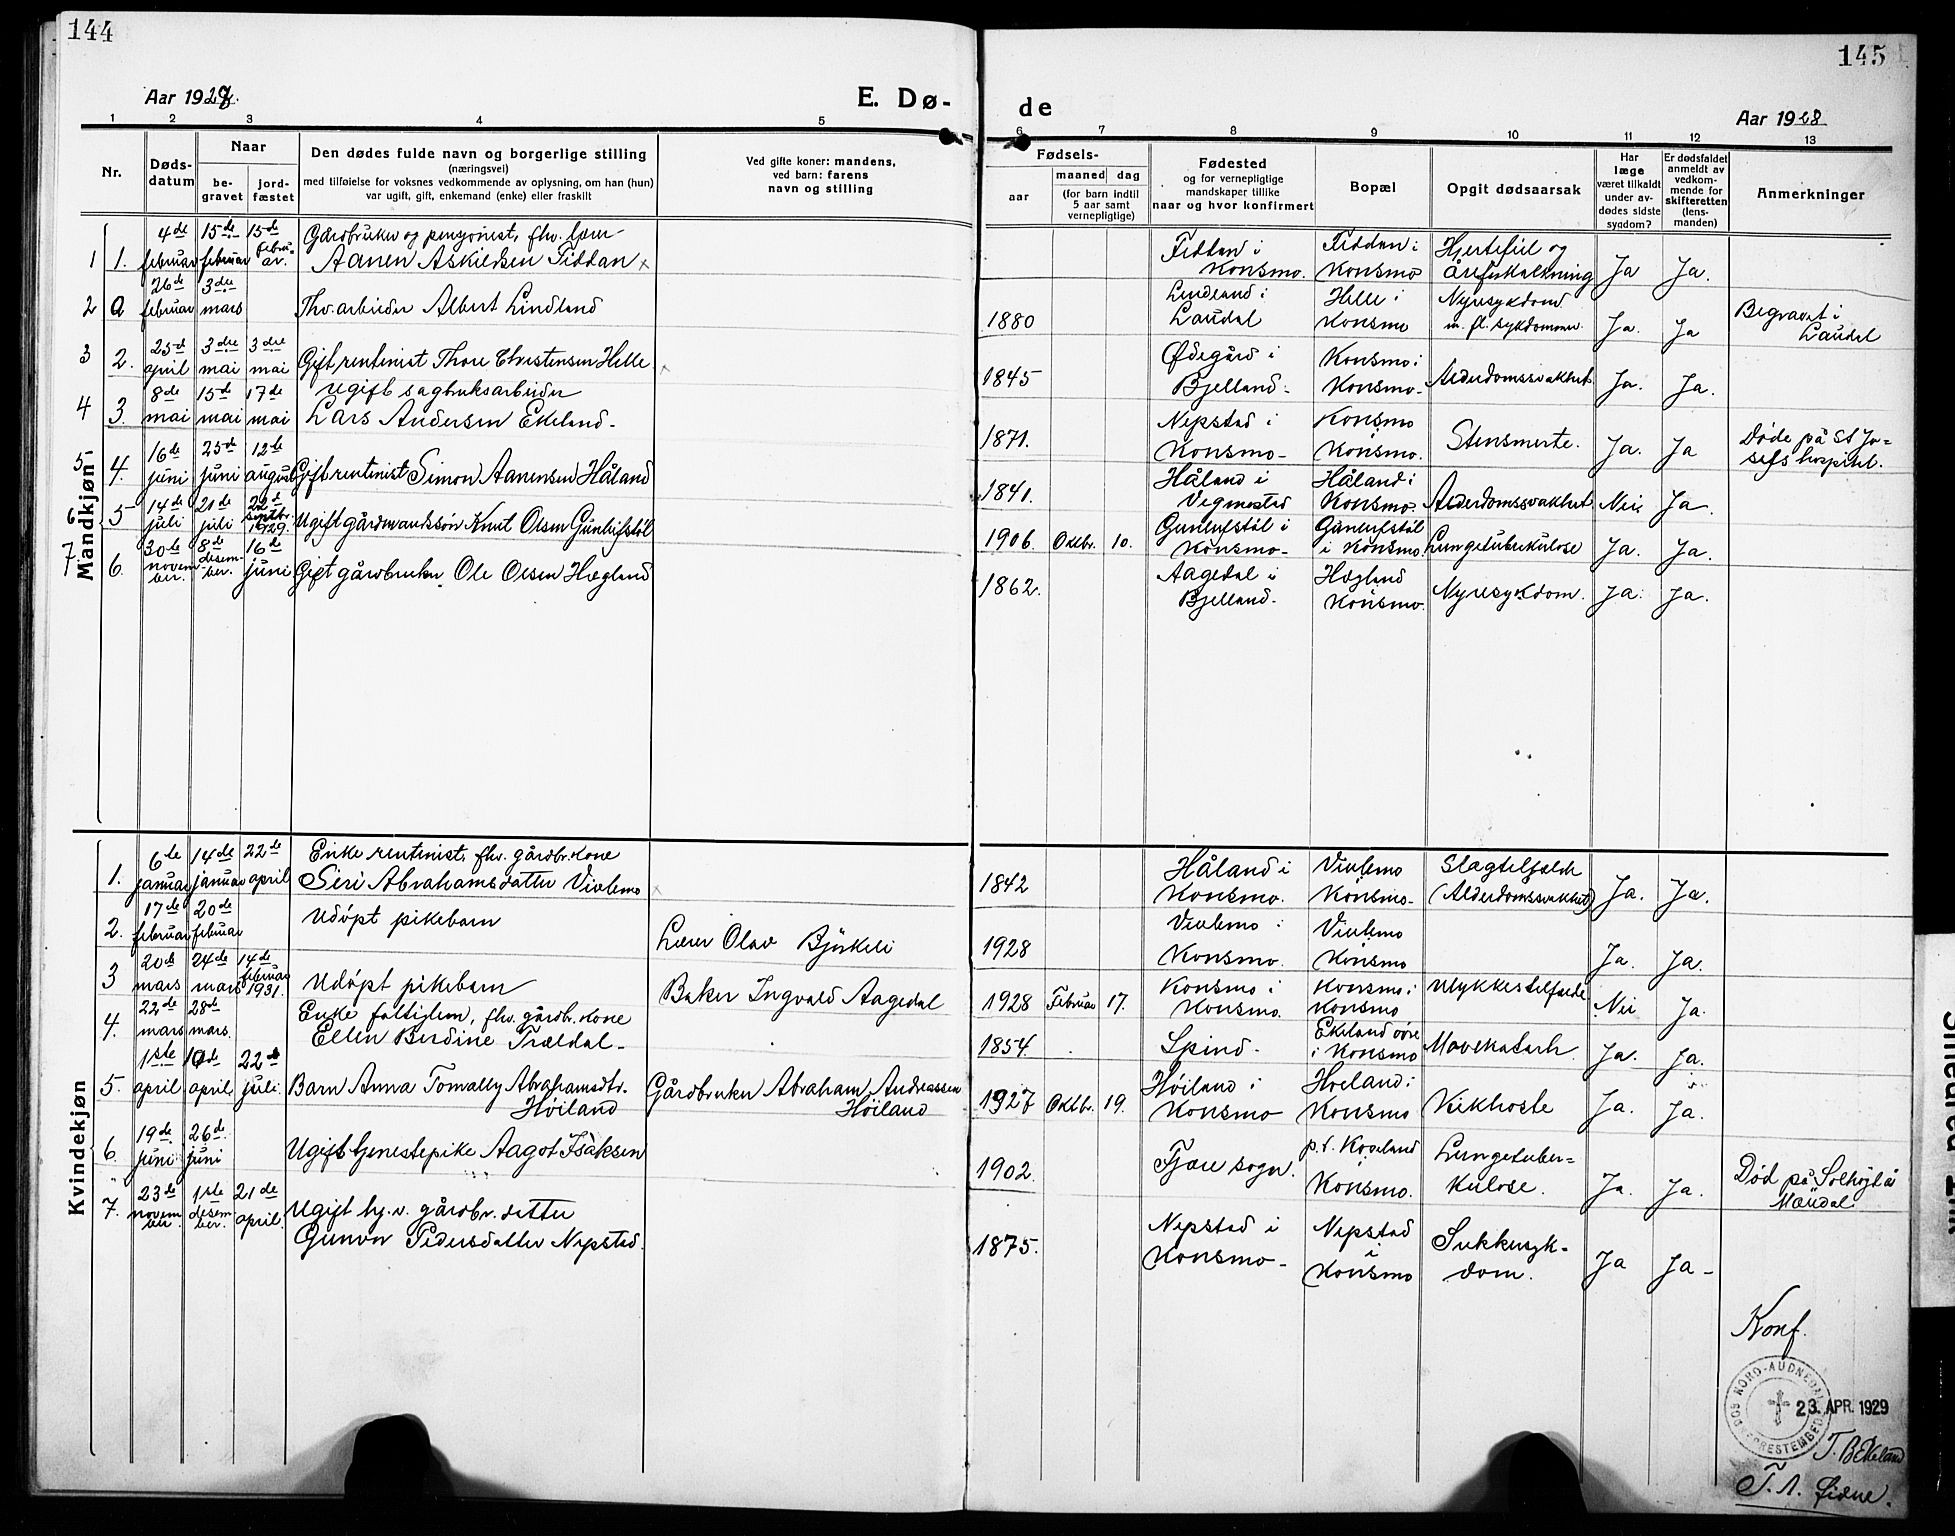 144
145
Aar 1928.
E. Dø-
de
Aar 1928
1 2 3 4 5 6 7 8 9 10 11 12 13
Nr.
Døds-
datum
Naar
be-
gravet
jord-
fæstet
Den dødes fulde navn og borgerlige stilling
(næringsvei)
med tilføielse for voksnes vedkommende av oplysning, om han (hun)
var ugift, gift, enkemand (enke) eller fraskilt
Ved gifte koner: mandens,
ved barn: farens
navn og stilling
Fødsels-
aar
maaned dag
(for barn indtil
5 aar samt
vernepligtige)
Fødested
og for vernepligtige
mandskaper tillike
naar og hvor konfirmert
Bopæl
Opgit dødsaarsak
Har
læge
været tilkaldt
under av-
dødes sidste
sygdom?
Er dødsfaldet
anmeldt av
vedkom-
mende for
skifteretten
(lens-
manden)
Anmerkninger
Mandkjøn
1 1. 4de februar 15de februar 15de februar. Gårdbruker og pensjonist, fhv. lærer
Aanen Askildsen Fiddan Fiddan i Konsmo. Fiddan i Konsmo Hjertefeil og Ja Ja.
2 a 26de februar 3dje mars Thv. arbeider Albert Lindland 1880 Lindland i Laudal Helle i Konsmo Nyresykdom m. fl. sykdommer. Ja. Ja Begravet i Laudal
3 2. 25d april 3dje mai 3dje mai Gift rentenist Thore Christensen Helle 1845 Ødegård i Bjelland- Konsmo i Konsmo- Alderdomssvakhet Ja. Ja.
4 3. 8de mai 15de mai 17de mai Ugift sagbruksarbeider
Lars Andersen Ekeland- 1871. Nepstad i Konsmo- Konsmo Konsmo. Stensmerte. Ja. Ja Døde på St Jo=
sefs hospital.
5 4. 16de juni 25de juni 12te august Gift rentenist Simon Aanensen Håland 1841. Håland i Vegmosted Håland i Konsmo Alderdomssvakhet Nei Ja.
6 5 14de juli 21de juli 22d septbr. 1929. Ugift gårdmandssøn Knut Olsen Gunleifstøl 1906. Oktbr. 10. Gunleifstøl i Konsmo- Gunleifstøl i Konsmo Lungetuberkulose Ja. Ja.
7 6. 30te november. 8de desember. 16de juni Gift gårdbruker Ole Olsen Hægland 1862. Aagedal i Bjelland. Hægland Konsmo. Nyresykdom. Ja. Ja.
Kvindekjøn
1. 6te januar 14de januar 22de april Enke rentenist, fhv. gårdbr. kone
Siri Abrahamsdatter Vivlemo 1842 Håland i Konsmo. Vivlemo Konsmo- Slagtilfælde
(Alderdomssvakhet) Ja. Ja.
2. 17de februar 20de februar Udöpt pikebarn Lærer Olav Bjørkeli 1928 Vivlemo i Konsmo. Vivlemo Konsmo Ja. Ja.
3 20de mars 24de mars 14de februar 1931. Udöpt pikebarn Baker Ingvald Aagedal 1928 Februar 17. Konsmo i Konsmo. Konsmo i Konsmo Ulykkestilfælde Nei Ja.
4. 22de mars 28de mars. Enke fattiglem, fhv. gårdbr. kone
Ellen Berdine Trældal- 1854. Spind. Ekeland øvre i Konsmo Mavekatarh. Ja. Ja.
5. 1ste april 10de april 22de juli. Barn Anna Tomally Abrahamsdtr. Høiland Gårdbruker Abraham Andreassen Høiland 1927 Oktbr. 19. Høiland i Konsmo Høiland i Konsmo Kikhoste Ja. Ja.
6. 19de juni 26de juni Ugift tjenestepike Aagot Isaksen 1902. Fjære sogn. p.t. Konsmo. Lungetuber=
kulose. Ja. Ja. Død på Solhøgda
7. 23de november. 1ste desember. 21de april. Ugift hj.v. gårdbr. datter
Gunvor Pedersdatter Nepstad. 1875. Nepstad i Konsmo- Nepstad i Konsmo Sukkersyk-
dom. Ja Ja-
Konf.
NORD-AUDNEDAL SOGNEPRESTEMBEDE
23. APR. 1929
T. B. Ekeland